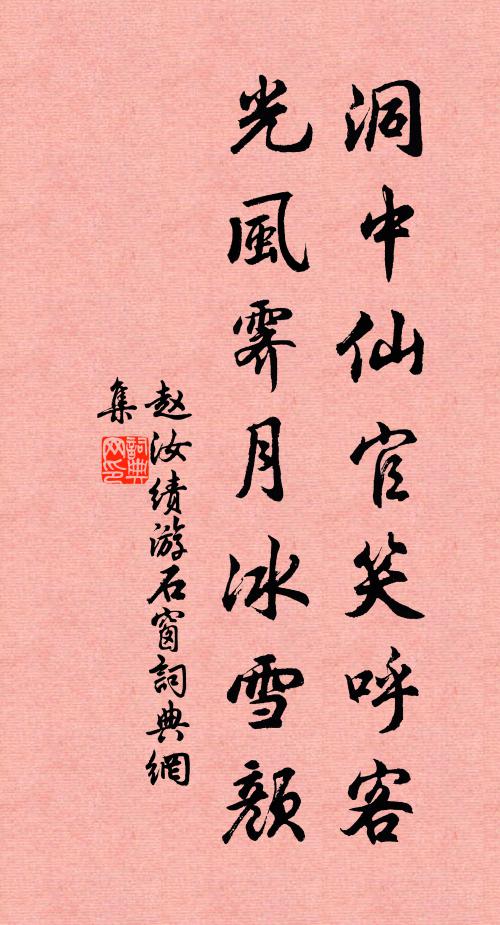 洞中仙官笑呼客
光風霽月冰雪顏
赵汝绩游石窗詞典網
集
詞典網印